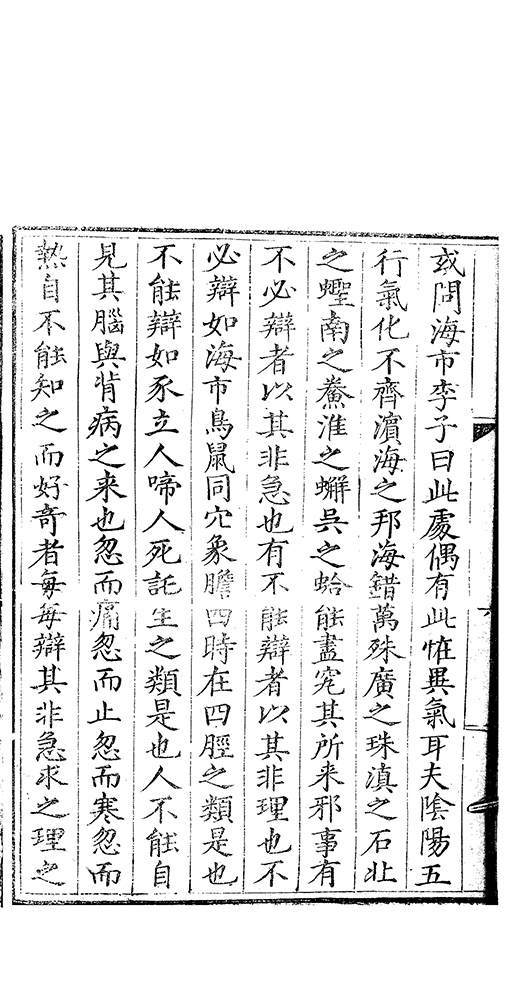 或問海市李子曰此處偶有此恠異氣耳夫陰陽五
行氣化不齊濵海之邦海錯萬殊廣之珠滇之石北
之蟶南之鮝淮之蠏吳之蛤能盡究其所来邪事有
不必辯者以其非急也有不能辯者以其非理也不
必辯如海市鳥鼠同穴象膽四時在四脛之類是也
不能辯如豕立人啼人死託生之類是也人不能自
見其腦與背病之来也忽而痛忽而止忽而寒忽而
熱自不能知之而好奇者每每辯其非急求之理之